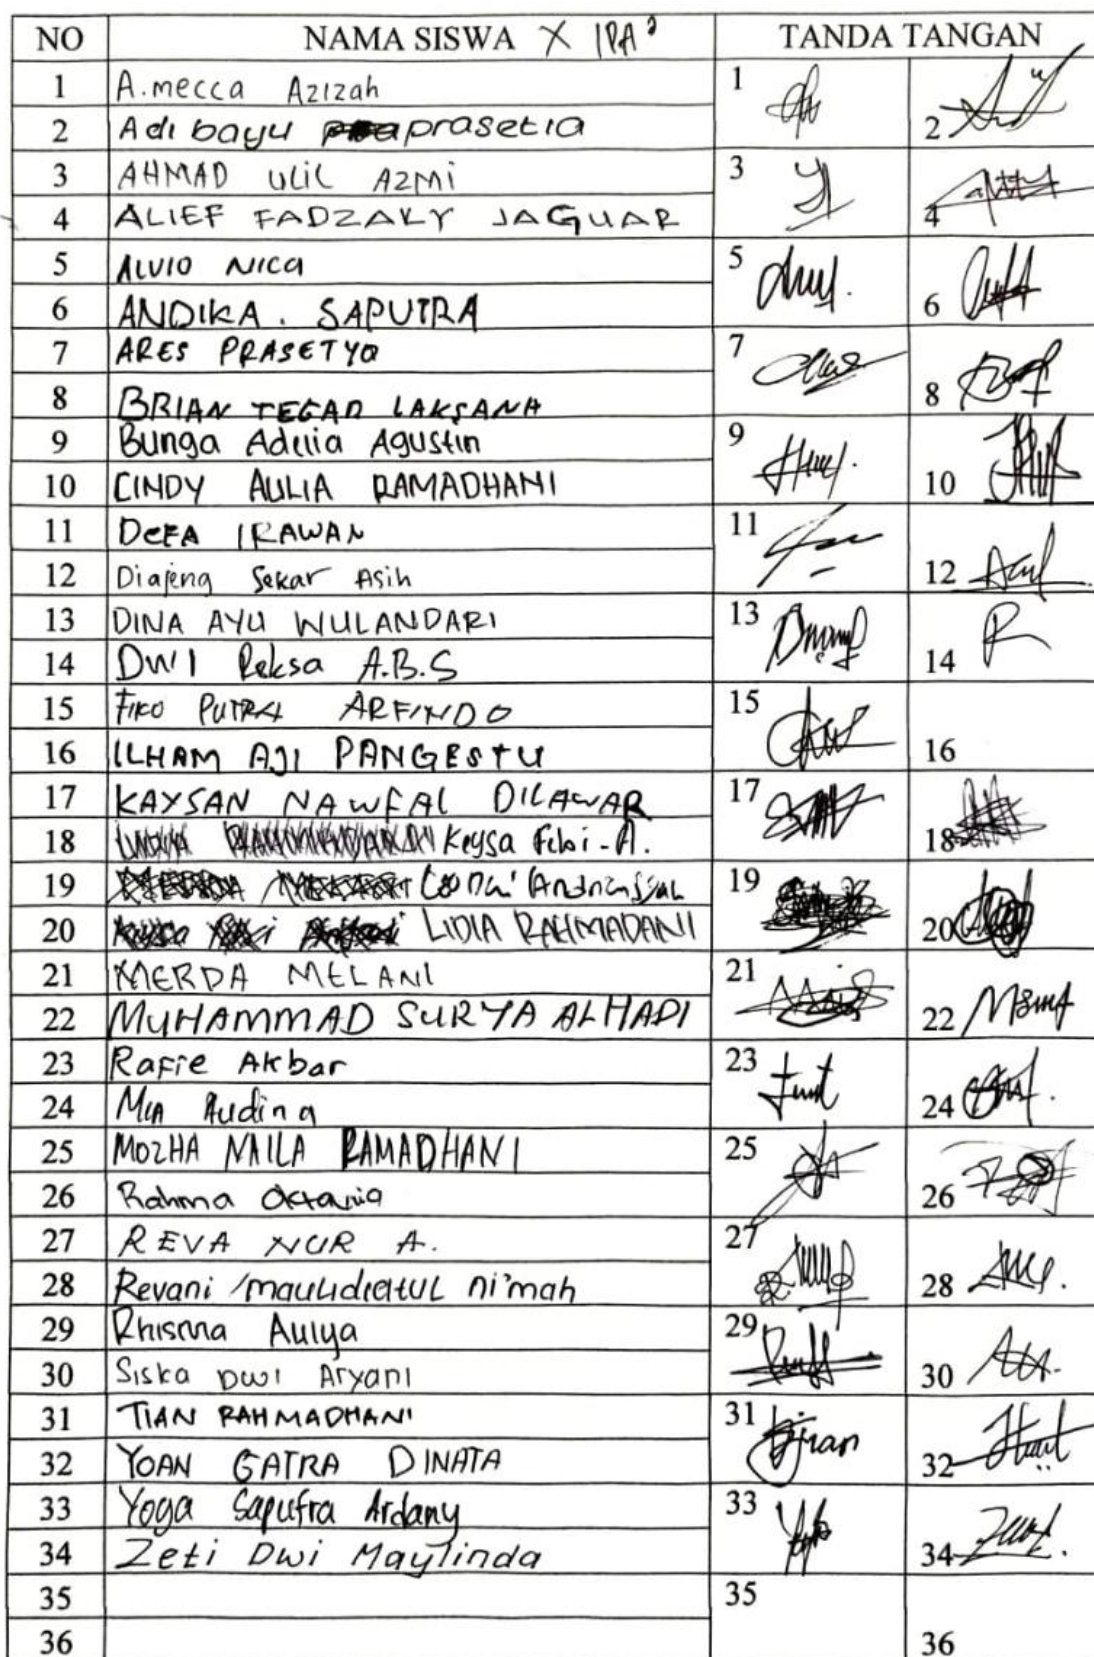 NO NAMA SISWA X IPA³ TANDA TANGAN
1 A.mecca Azizah 1
2 Adi bayu prasetia 2
3 AHMAD ULIL AZMI 3
4 ALIEF FADZAKY JAGUAR 4
5 ALVIO NICA 5
6 ANDIKA . SAPUTRA 6
7 ARES PRASETYO 7
8 BRIAN TEGAR LAKSANA 8
9 Bunga Adelia Agustin 9
10 CINDY AULIA RAMADHANI 10
11 DEFA IRAWAN 11
12 Diajeng Sekar Asih 12
13 DINA AYU WULANDARI 13
14 DWI Reksa A.B.S 14
15 FIKO PUTRA ARFINDO 15
16 ILHAM AJI PANGESTU 16
17 KAYSAN NAWFAL DILAWAR 17
18 Keysa Febi-A. 18
19 19
20 LIDIA RAHMADANI 20
21 MERDA MELANI 21
22 MUHAMMAD SURYA ALHADI 22
23 Rafie Akbar 23
24 Mia Audina 24
25 MOZHA NAILA RAMADHANI 25
26 Rahma Oktavia 26
27 REVA NUR A. 27
28 Revani maulidiatul ni'mah 28
29 Rhisma Aulya 29
30 Siska Dwi Aryani 30
31 TIAN RAHMADHANI 31
32 YOAN GATRA DINATA 32
33 Yoga Saputra Ardany 33
34 Zeti Dwi Maylinda 34
35 35
36 36